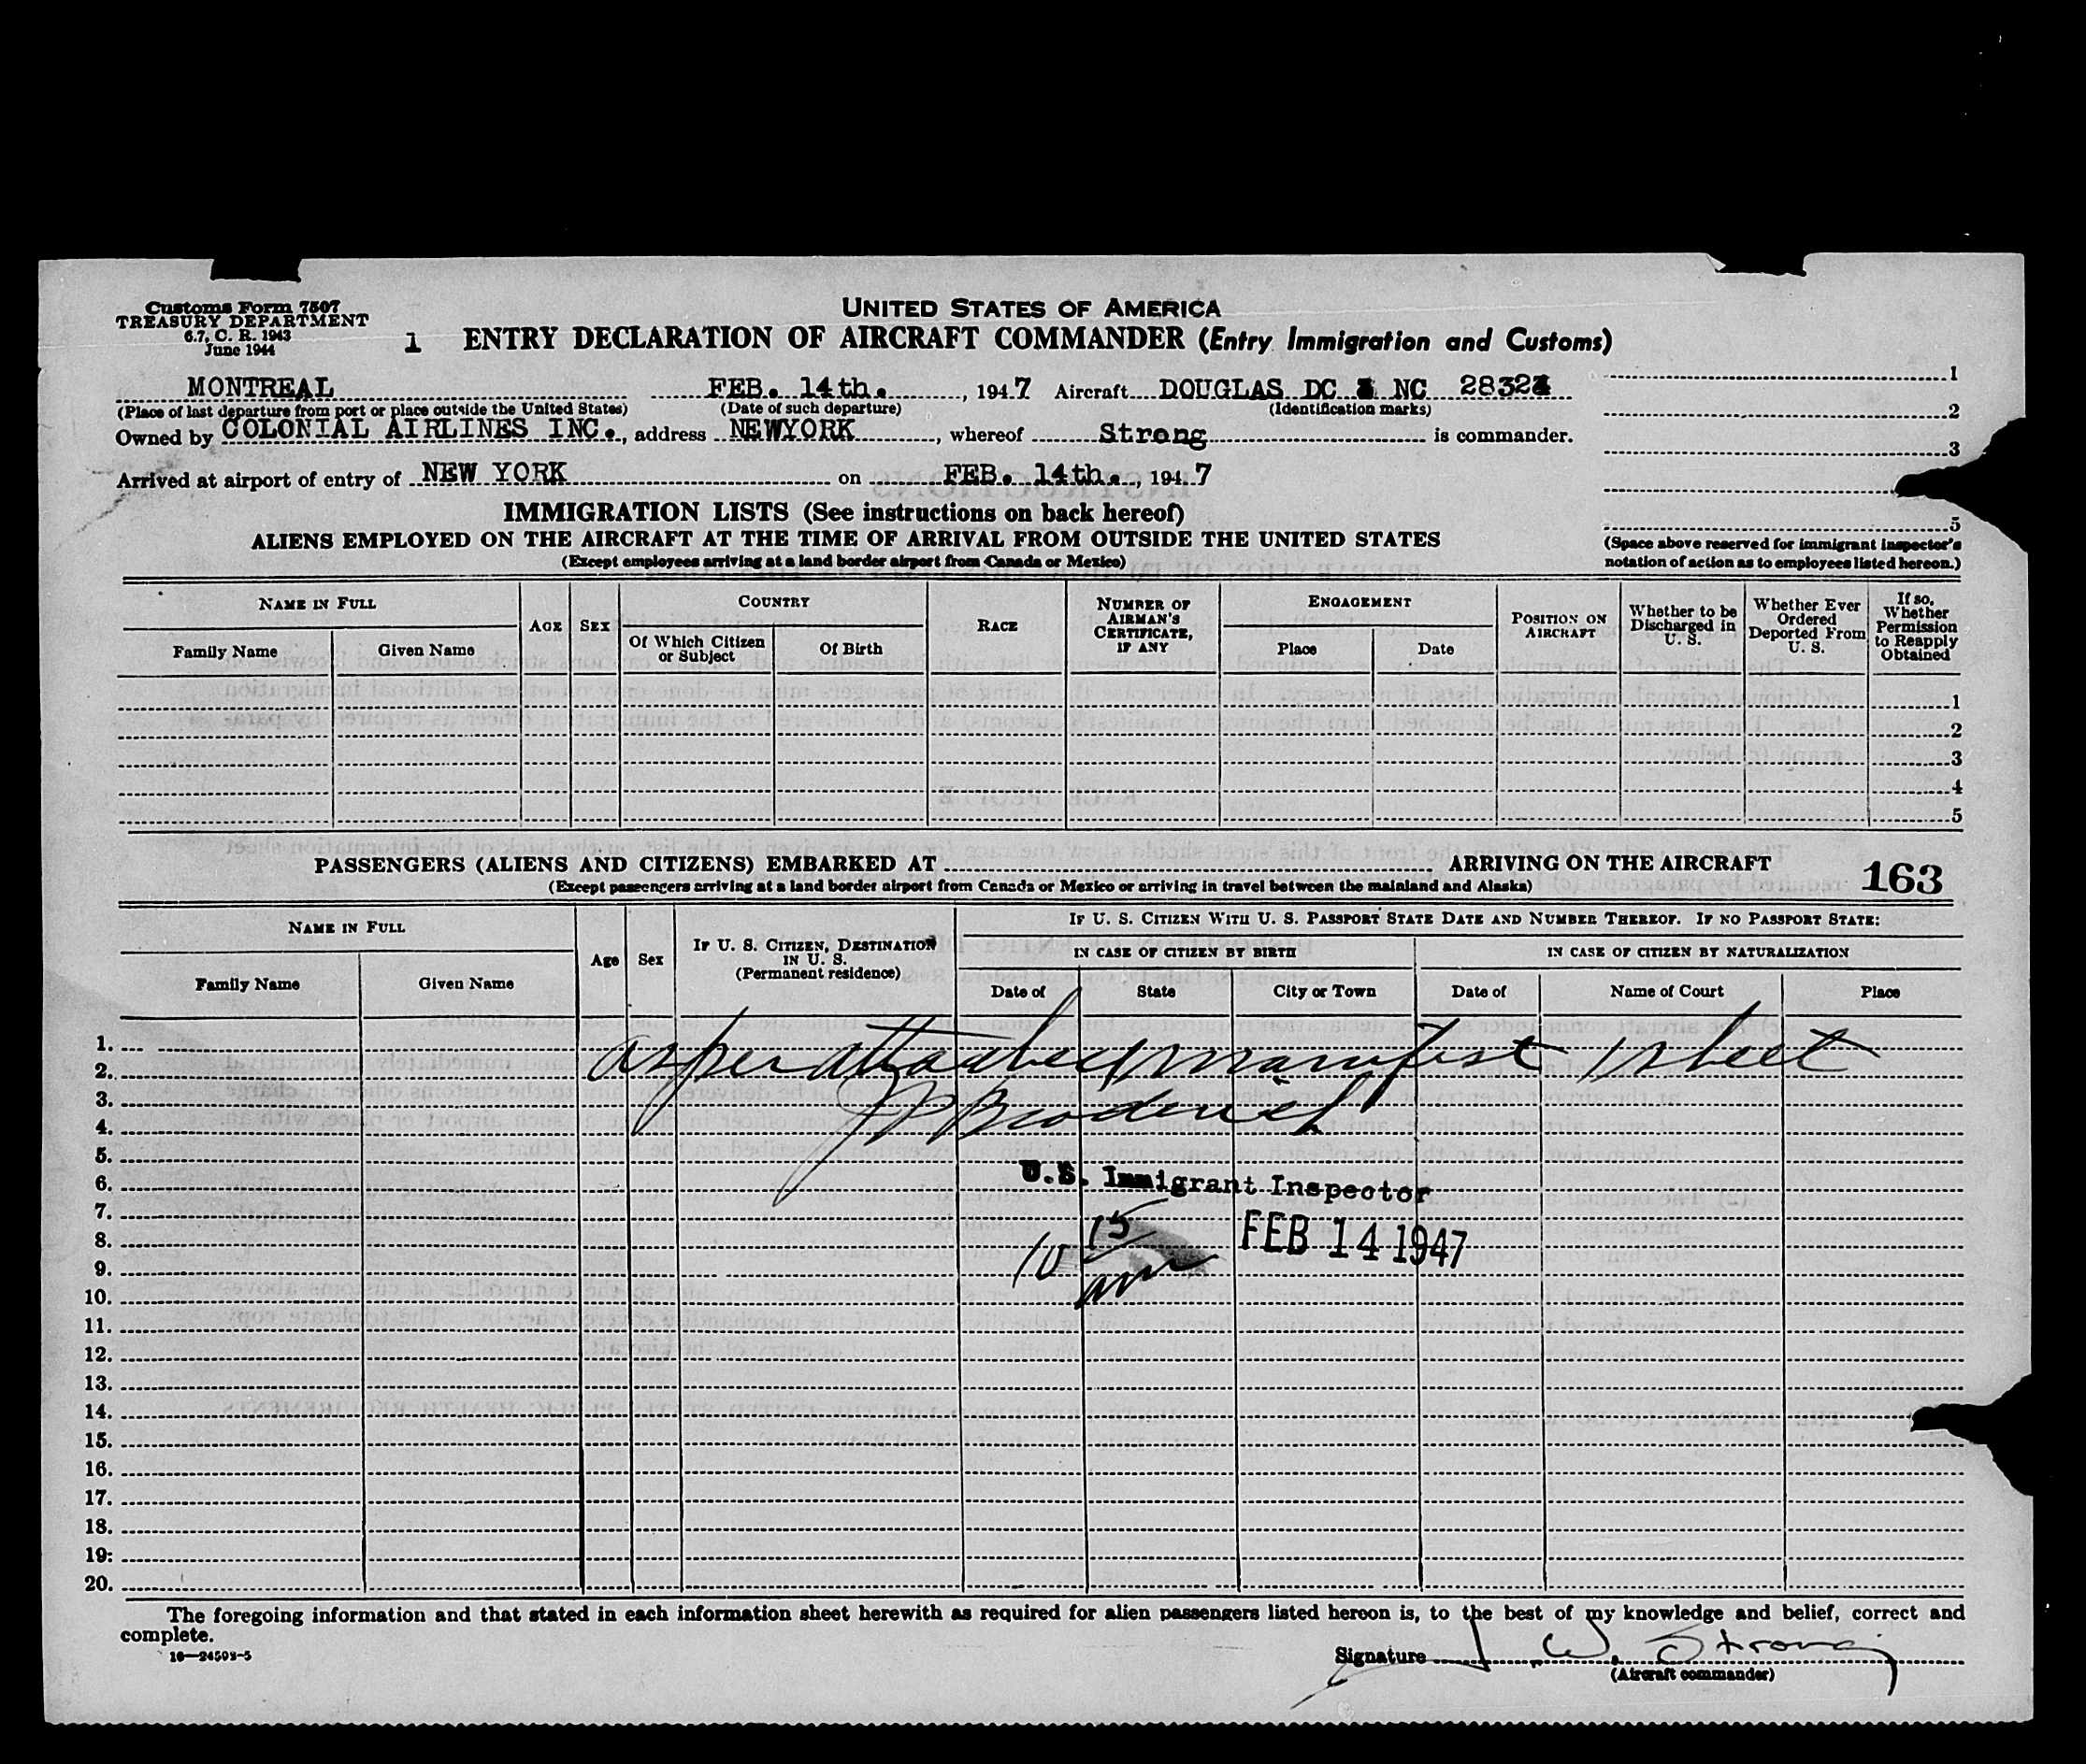 Customs Form 7507
TREASURY DEPARTMENT
6.7, C. R. 1943
June 1944
UNITED STATES OF AMERICA
1 ENTRY DECLARATION OF AIRCRAFT COMMANDER (Entry Immigration and Customs)
MONTREAL FEB. 14th. , 1947 Aircraft DOUGLAS DC NC
(Place of last departure from port or place outside the United States) (Date of such departure) (Identification marks)
Owned by COLONIAL AIRLINES INC., address NEWYORK, whereof Strong is commander.
Arrived at airport of entry of NEW YORK on FEB. 14th., 1947
1
2
3
5
(Space above reserved for immigrant inspector's
notation of action as to employees listed hereon.)
IMMIGRATION LISTS (See instructions on back hereof)
ALIENS EMPLOYED ON THE AIRCRAFT AT THE TIME OF ARRIVAL FROM OUTSIDE THE UNITED STATES
(Except employees arriving at a land border airport from Canada or Mexico)
NAME IN FULL
Family Name
Given Name
AGE
SEX
COUNTRY
Of Which Citizen
or Subject
Of Birth
RACE
NUMBER OF
AIRMAN'S
CERTIFICATE,
IF ANY
ENGAGEMENT
Place
Date
POSITION ON
AIRCRAFT
Whether to be
Discharged in
U. S.
Whether Ever
Ordered
Deported From
U. S.
If so,
Whether
Permission
to Reapply
Obtained
1
2
3
4
5
PASSENGERS (ALIENS AND CITIZENS) EMBARKED AT ARRIVING ON THE AIRCRAFT 163
(Except passengers arriving at a land border airport from Canada or Mexico or arriving in travel between the mainland and Alaska)
NAME IN FULL
Family Name
Given Name
Age
Sex
IF U. S. CITIZEN, DESTINATION
IN U. S.
(Permanent residence)
IF U. S. CITIZEN WITH U. S. PASSPORT STATE DATE AND NUMBER THEREOF. IF NO PASSPORT STATE:
IN CASE OF CITIZEN BY BIRTH
IN CASE OF CITIZEN BY NATURALIZATION
Date of
State
City or Town
Date of
Name of Court
Place
1.
2.
3.
4.
5.
6.
7.
8.
9.
10.
11.
12.
13.
14.
15.
16.
17.
18.
19.
20.
as per attached manifest 1 sheet
JP Broderick
U.S. Immigrant Inspector
10 15 am
FEB 14 1947
The foregoing information and that stated in each information sheet herewith as required for alien passengers listed hereon is, to the best of my knowledge and belief, correct and
complete.
16—24503-5
Signature J. W. Strong
(Aircraft commander)